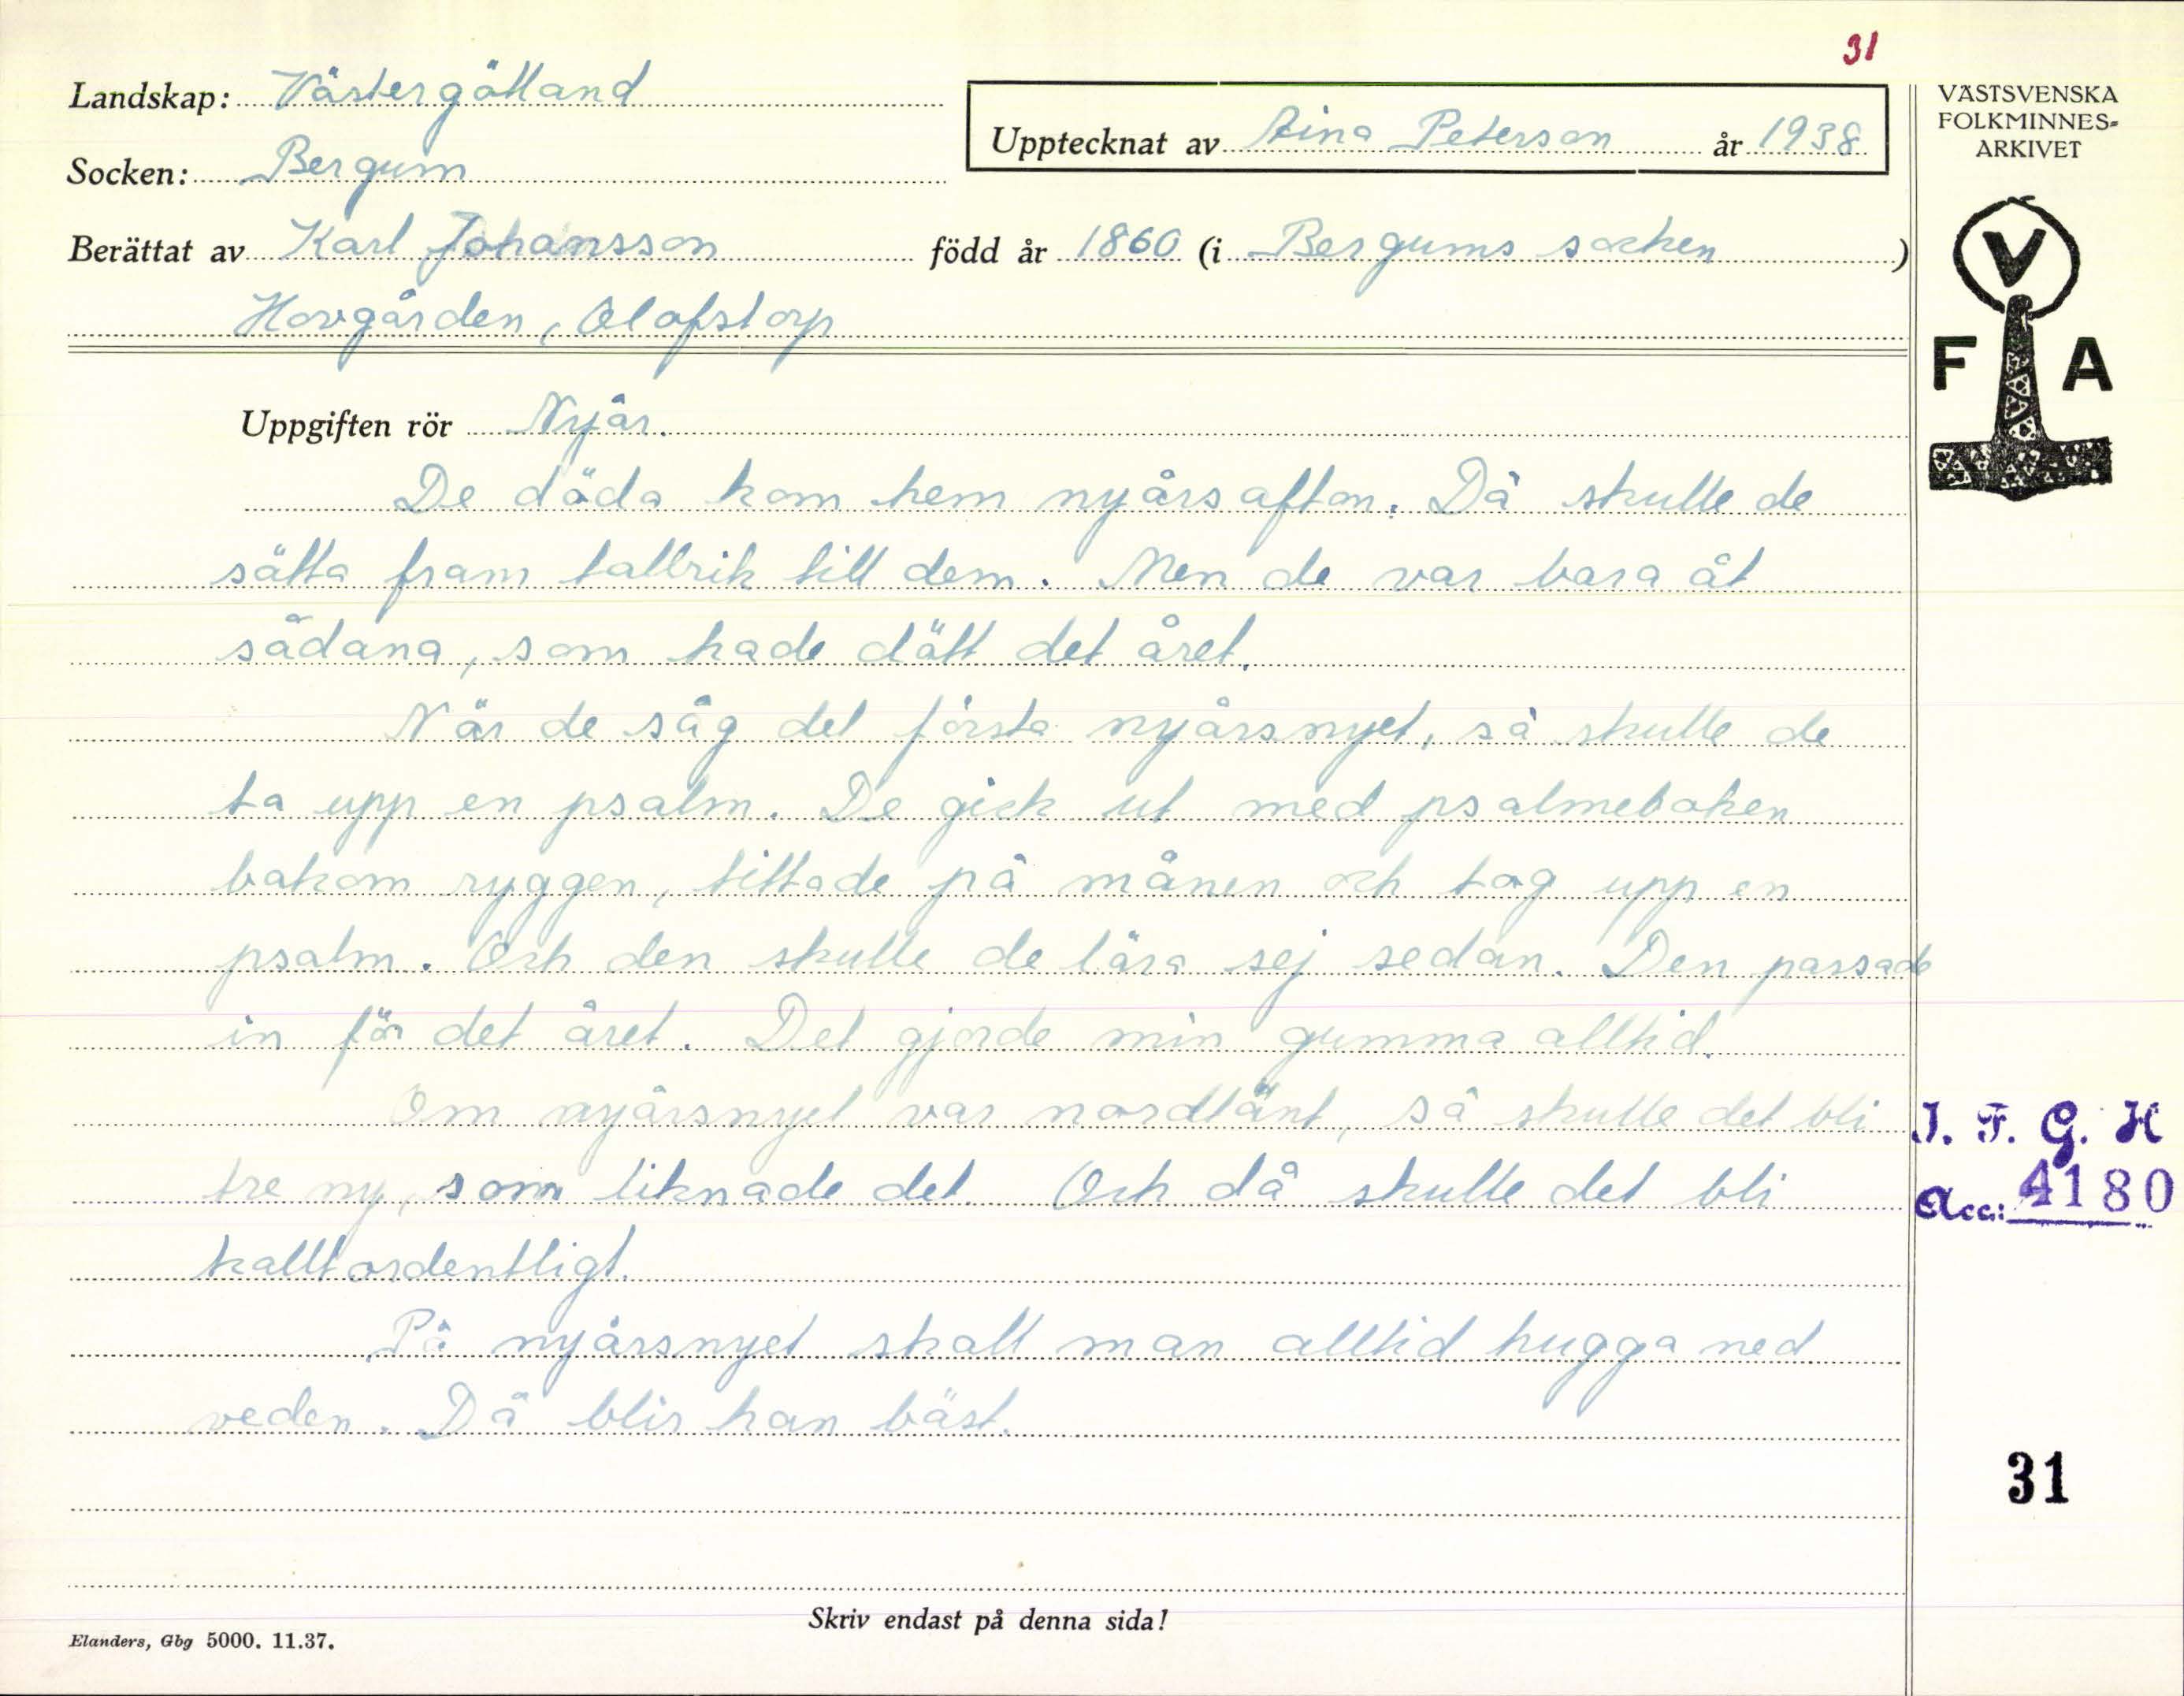 31
Landskap: Västergötland
Socken: Bergum
Upptecknat av Aina Peterson år 1938
Berättat av Karl Johansson född år 1860 (i Bergums socken)
Hovgården, Olofstorp
VÄSTSVENSKA
FOLKMINNES=
ARKIVET
V
F A
Uppgiften rör Nyår.
De döda kom hem nyårsafton. Då skulle de
sätta fram tallrik till dem. Men de var bara åt
sådana, som hade dött det året.
När de såg det första nyårsnyet, så skulle de
ta upp en psalm. De gick ut med psalmeboken
bakom ryggen, tittade på månen och tog upp en
psalm. Och den skulle de lära sej sedan. Den passade
in för det året. Det gjorde min gumma alltid.
Om nyårsnyet var nordlänt, så skulle det bli
tre ny, som liknade det. Och då skulle det bli
kallt ordentligt.
På nyårsnyet skall man alltid hugga ned
veden. Då blir han bäst.
I. F. G. H
Acc: 4180
31
Skriv endast på denna sida!
Elanders, Gbg 5000. 11.37.